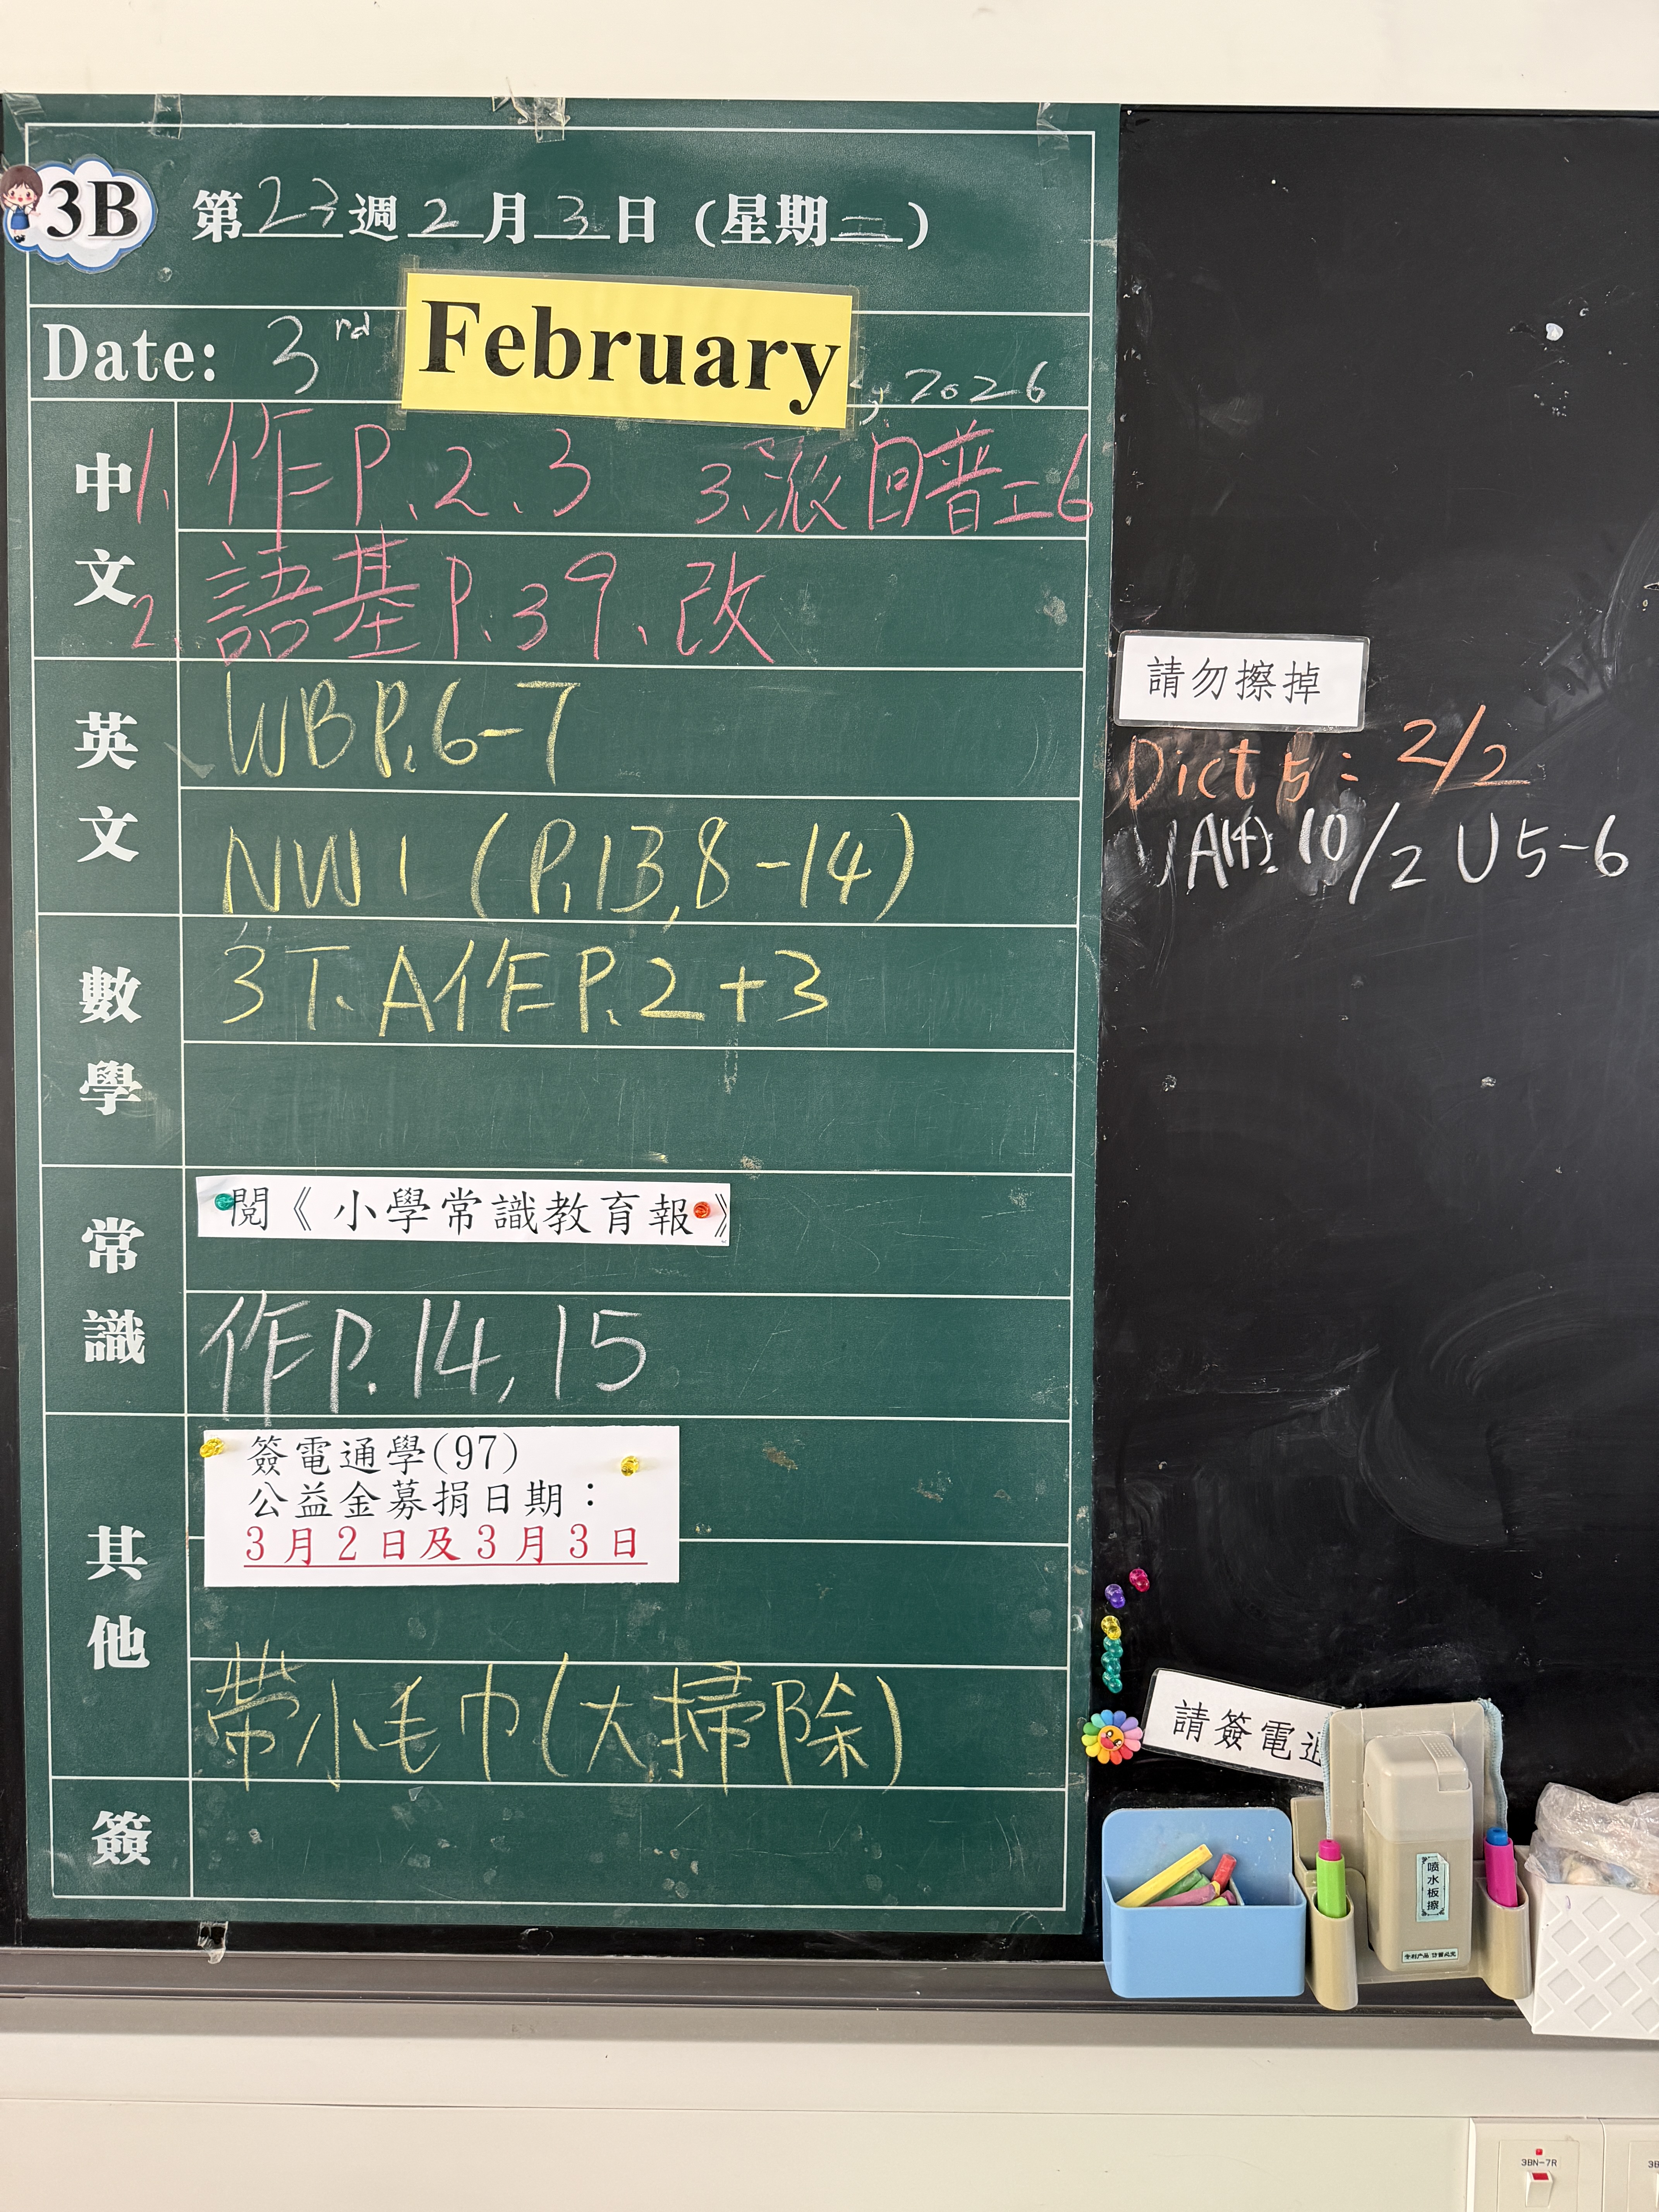 3B
第23週2月3日(星期二)
Date: 3rd February, 2026
中文
1、作P.2、3 3、派回普工6
2、語基P.39、改
英文
WB P.6-7
NW1 (P.13, 8-14)
數學
3T、A作P.2+3
常識
閱《小學常識教育報》
作P.14, 15
其他
簽電通學(97)
公益金募捐日期：
3月2日及3月3日
帶小毛巾(大掃除)
簽
請勿擦掉
Dict 5: 2/2
A(4): 10/2 U5-6
請簽電
喷水板擦
3BN-7R